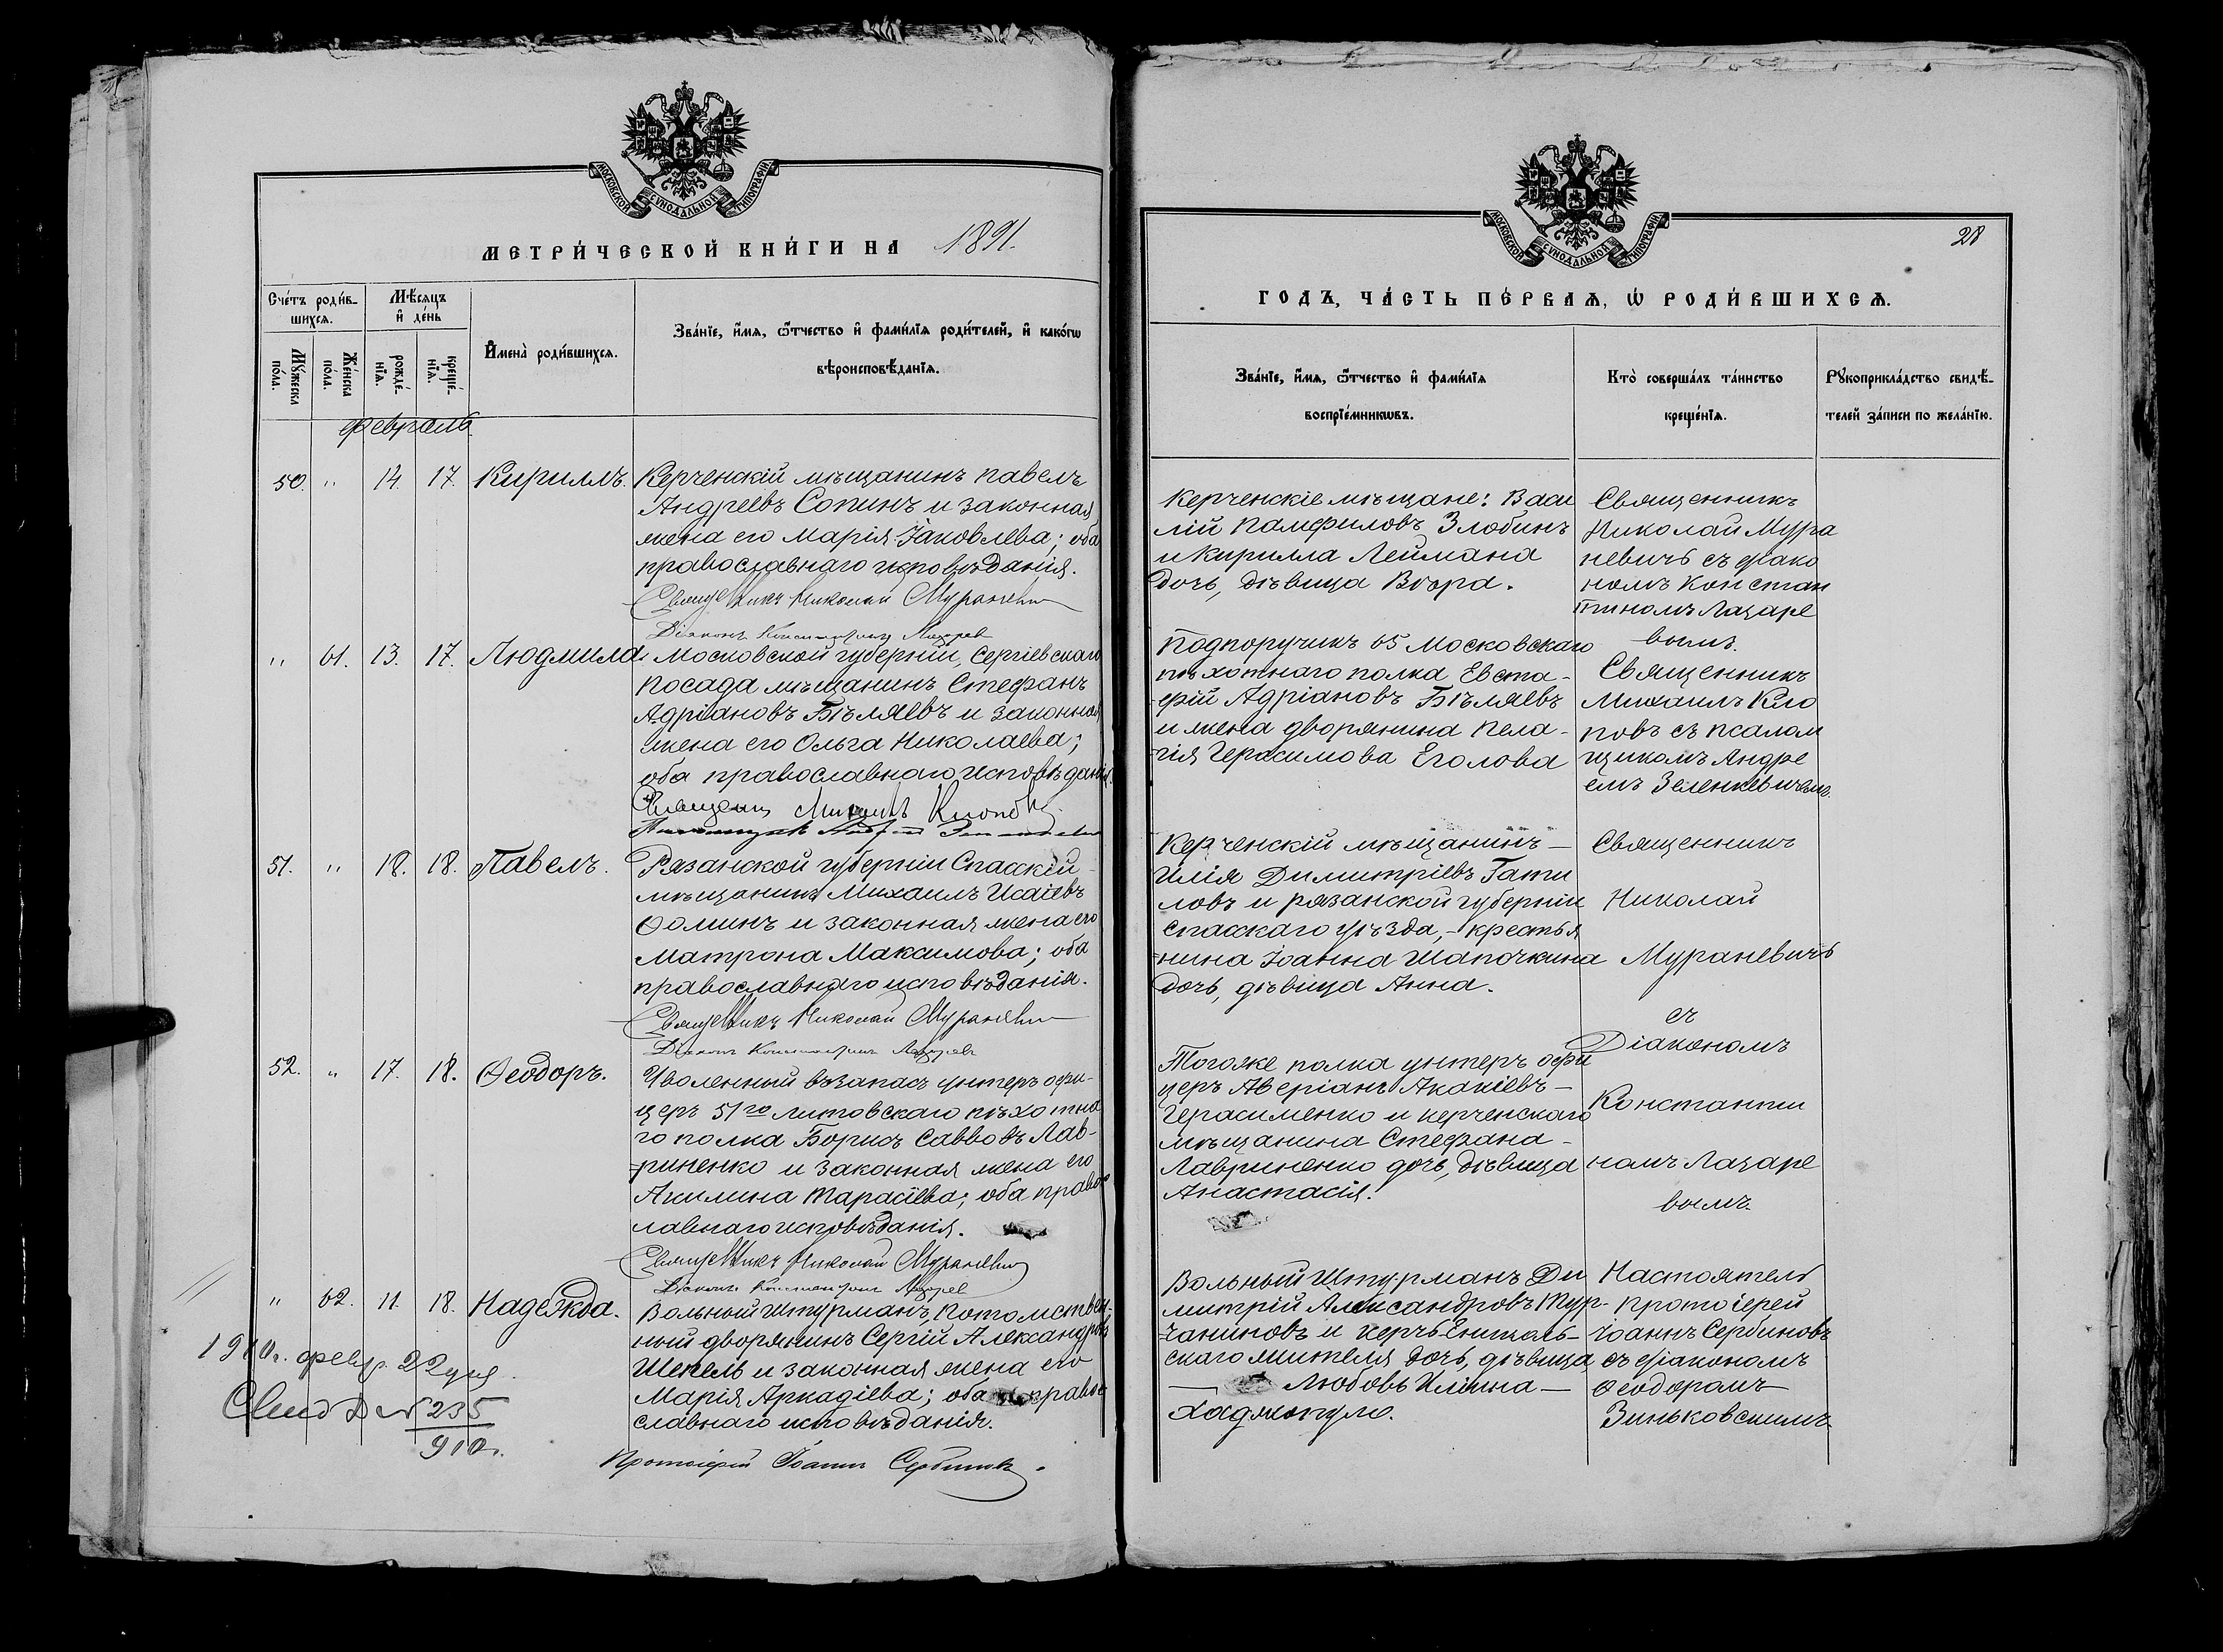 МОСКОВСКОЙ СѴНОДАЛЬНОЙ ТИПОГРАФІИ
МЕТРИ́ЧЕСКОЙ КНИ́ГИ НА 1891.
Сче́тъ роди́в-
шихсѧ.
Мѣ́сѧцъ
и҆ де́нь
Мꙋ́жеска
по́ла.
Же́нска
по́ла.
рожде́-
нїѧ.
креще́-
нїѧ.
И҆мена̀ роди́вшихсѧ.
Зва́нїе, и҆́мѧ, ѻ҆́тчество и҆ фамі́лїѧ роди́телей, и҆ како́гѡ
вѣроисповѣ́данїѧ.
Февраль
50. " 14. 17. Кириллъ. Керченскій мѣщанинъ Павелъ
Андреевъ Сопинъ и законная
жена его Марія Іаковлева; оба
православнаго исповѣданія.
Священникъ Николай Мураневичъ
Діаконъ Константинъ Лазарев
" 61. 13. 17. Людмила Московской губерніи, Сергіевскаго
посада мѣщанинъ Стефанъ
Адріановъ Бѣляевъ и законная
жена его Ольга Николаева;
оба православнаго исповѣданія.
Священникъ Михаилъ Клоповъ
51. " 18. 18. Павелъ. Рязанской губерніи Спасскій
мѣщанинъ Михаилъ Исаіевъ
Ѳоминъ и законная жена его
Матрона Максимова; оба
православнаго исповѣданія.
Священникъ Николай Мураневичъ
Діаконъ Константинъ Лазаревъ
52. " 17. 18. Ѳеодоръ. Уволенный въ запасъ унтеръ офи-
церъ 51го Литовскаго пѣхотна
го полка Борисъ Саввовъ Лав-
риненко и законная жена его
Акилина Тарасіева; оба право
лавнаго исповѣданія.
Священникъ Николай Мураневичъ
Діаконъ Константинъ Лазарев
" 62. 11. 18. Надежда. Вольный штурманъ, потомствен-
ный дворянинъ Сергій Александровъ
Шепель и законная жена его
Марія Аркадіева; оба право
славнаго исповѣданія.
Протоіерей Іоаннъ Сербиновъ.
1910г. февр. 22 дня
Свид. № 235
910г.
МОСКОВСКОЙ СѴНОДАЛЬНОЙ ТИПОГРАФІИ
28
ГОДЪ, ЧА́СТЬ ПЕ́РВАѦ, Ѡ҆ РОДИ́ВШИХСѦ.
Зва́нїе, и҆́мѧ, ѻ҆́тчество и҆ фамі́лїѧ
воспрїе́мникѡвъ.
Кто̀ соверша́лъ та́инство
креще́нїѧ.
Рꙋкоприкла́дство свидѣ́-
телей за́писи по жела́нїю.
Керченскіе мѣщане: Васи
лій Памфиловъ Злобинъ
и Кирилла Леймана
дочь, дѣвица Вѣра.
Священникъ
Николай Мура
невичъ съ діако
номъ Констан
тиномъ Лазаре
вымъ.
Подпоручикъ 65 Московскаго
пѣхотнаго полка Евста-
фій Адріановъ Бѣляевъ
и жена дворянина Пела-
гія Герасимова Еголова
Священникъ
Михаилъ Кло
повъ съ псалом
щикомъ Андре
емъ Зеленкевичемъ.
Керченскій мѣщанинъ —
Илія Димитріевъ Гати
ловъ и рязанской губерніи
Спасскаго уѣзда, - крестья
нина Іоанна Шапочкина
дочь, дѣвица Анна.
Священникъ
Николай
Мураневичъ
съ
Діакономъ
Константи
номъ Лазаре
вымъ.
Тогоже полка унтеръ офи
церъ Аверіанъ Акакіевъ —
Герасименко и керченскаго
мѣщанина Стефана -
Лавриненко дочь, дѣвица
Анастасія.
Вольный Штурманъ Ди
митрій Александровъ Тур-
чаниновъ и керчь-Еникаль-
скаго жителя дочь, дѣвица
— Любовь Иліина —
Хаджопуло.
Настоятель
протоіерей
Іоаннъ Сербиновъ
съ діакономъ
Ѳеодоромъ
Зиньковскимъ.